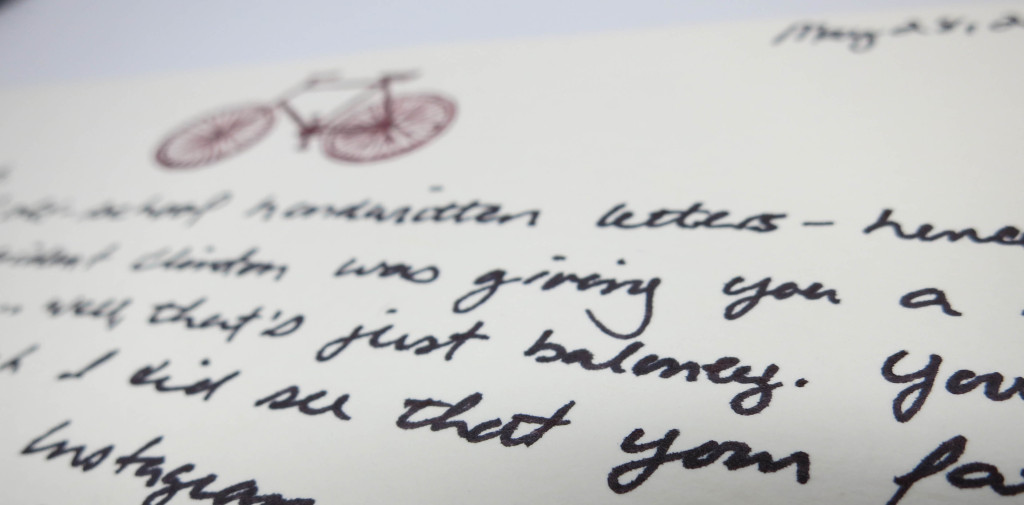 May 28, 2
old-school handwritten letters – hence
Clinton was giving you a
well, that's just baloney. You
I did see that your fa
Instagram